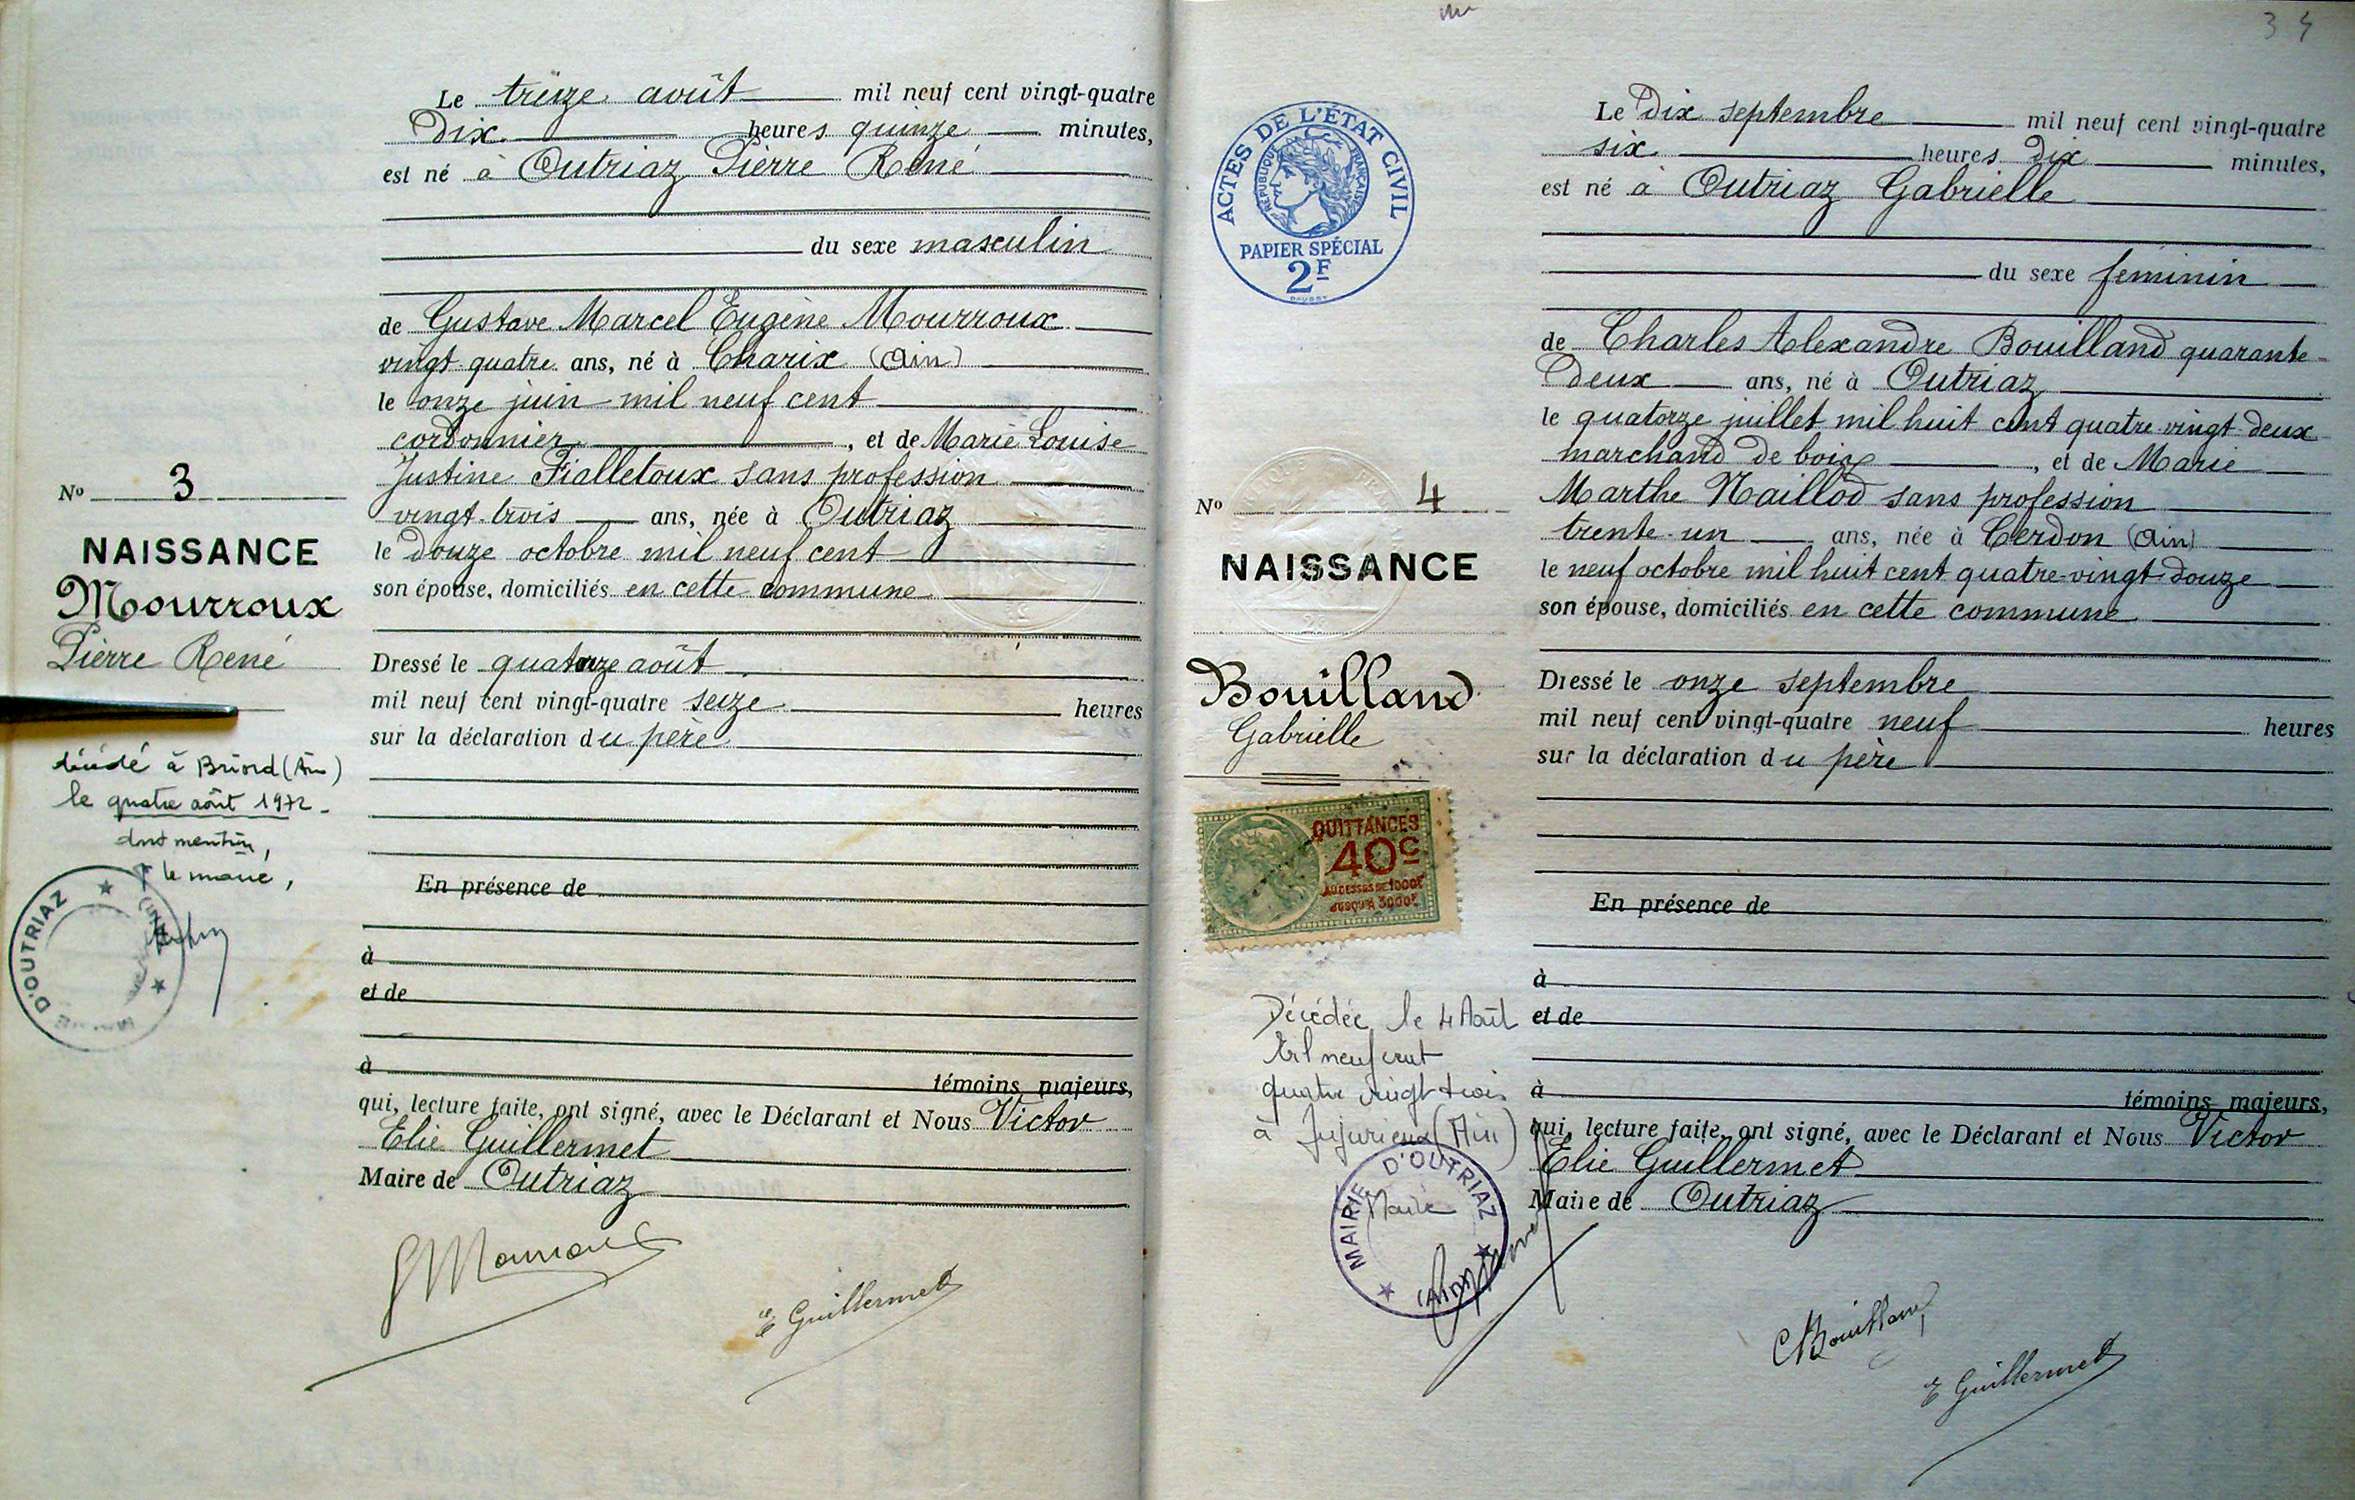 Le treize août mil neuf cent vingt-quatre
Dix heures quinze minutes,
est né à Outriaz Pierre René
du sexe masculin
de Gustave Marcel Eugène Mourroux
vingt-quatre ans, né à Charix (Ain)
le onze juin mil neuf cent
cordonnier, et de Marie Louise
Justine Fialletoux sans profession
vingt-trois ans, née à Outriaz
le douze octobre mil neuf cent
son épouse, domiciliés en cette commune
Dressé le quatorze août
mil neuf cent vingt-quatre seize heures
sur la déclaration du père
En présence de
à
et de
à
témoins majeurs,
qui, lecture faite, ont signé, avec le Déclarant et Nous Victor
Elie Guillermet
Maire de Outriaz
E Guillermet
No 3
NAISSANCE
Mourroux
Pierre René
décédé à Briord (Ain)
le quatre août 1972
dont mention,
le maire,
MAIRIE D'OUTRIAZ
34
ACTES DE L'ÉTAT CIVIL
RÉPUBLIQUE FRANÇAISE
PAPIER SPÉCIAL
2F
No 4
NAISSANCE
Bouilland
Gabrielle
QUITTANCES
40c
AU DESSUS DE 1000F
JUSQU'À 3000F
Décédée le 4 Août
Mil neuf cent
quatre vingt trois
à Jujurieux (Ain)
Maire
MAIRIE D'OUTRIAZ
(AIN)
Le Dix septembre mil neuf cent vingt-quatre
six heures dix minutes,
est né à Outriaz Gabrielle
du sexe feminin
de Charles Alexandre Bouilland quarante-
Deux ans, né à Outriaz
le quatorze juillet mil huit cent quatre-vingt-deux
marchand de bois, et de Marie
Marthe Maillod sans profession
trente-un ans, née à Cerdon (Ain)
le neuf octobre mil huit cent quatre-vingt-douze
son épouse, domiciliés en cette commune
Dressé le onze septembre
mil neuf cent vingt-quatre neuf heures
sur la déclaration du père
En présence de
à
et de
à
témoins majeurs,
qui, lecture faite, ont signé, avec le Déclarant et Nous Victor
Elie Guillermet
Maire de Outriaz
C Bouilland
E Guillermet